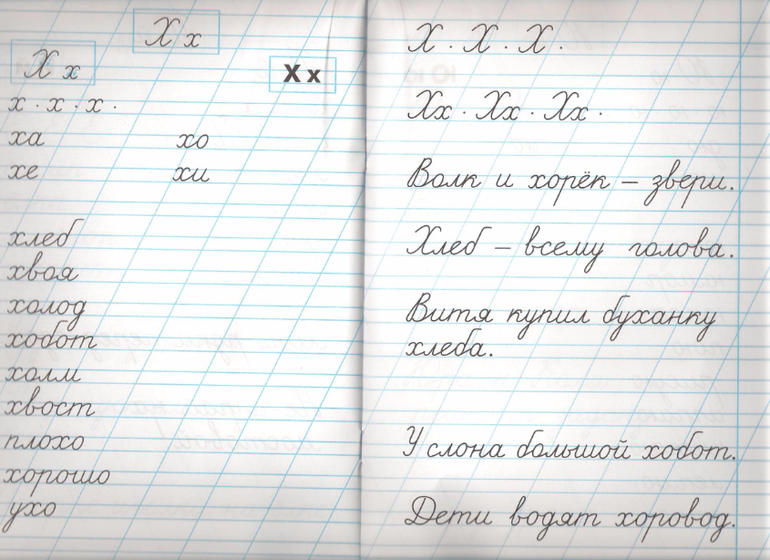 Х х
Х х
Х х
х · х · х ·
ха хо
хе хи
хлеб
хвоя
холод
хобот
холм
хвост
плохо
хорошо
ухо
Х · Х · Х ·
Хх · Хх · Хх ·
Волк и хорёк – звери.
Хлеб – всему голова.
Витя купил буханку
хлеба.
У слона большой хобот.
Дети водят хоровод.